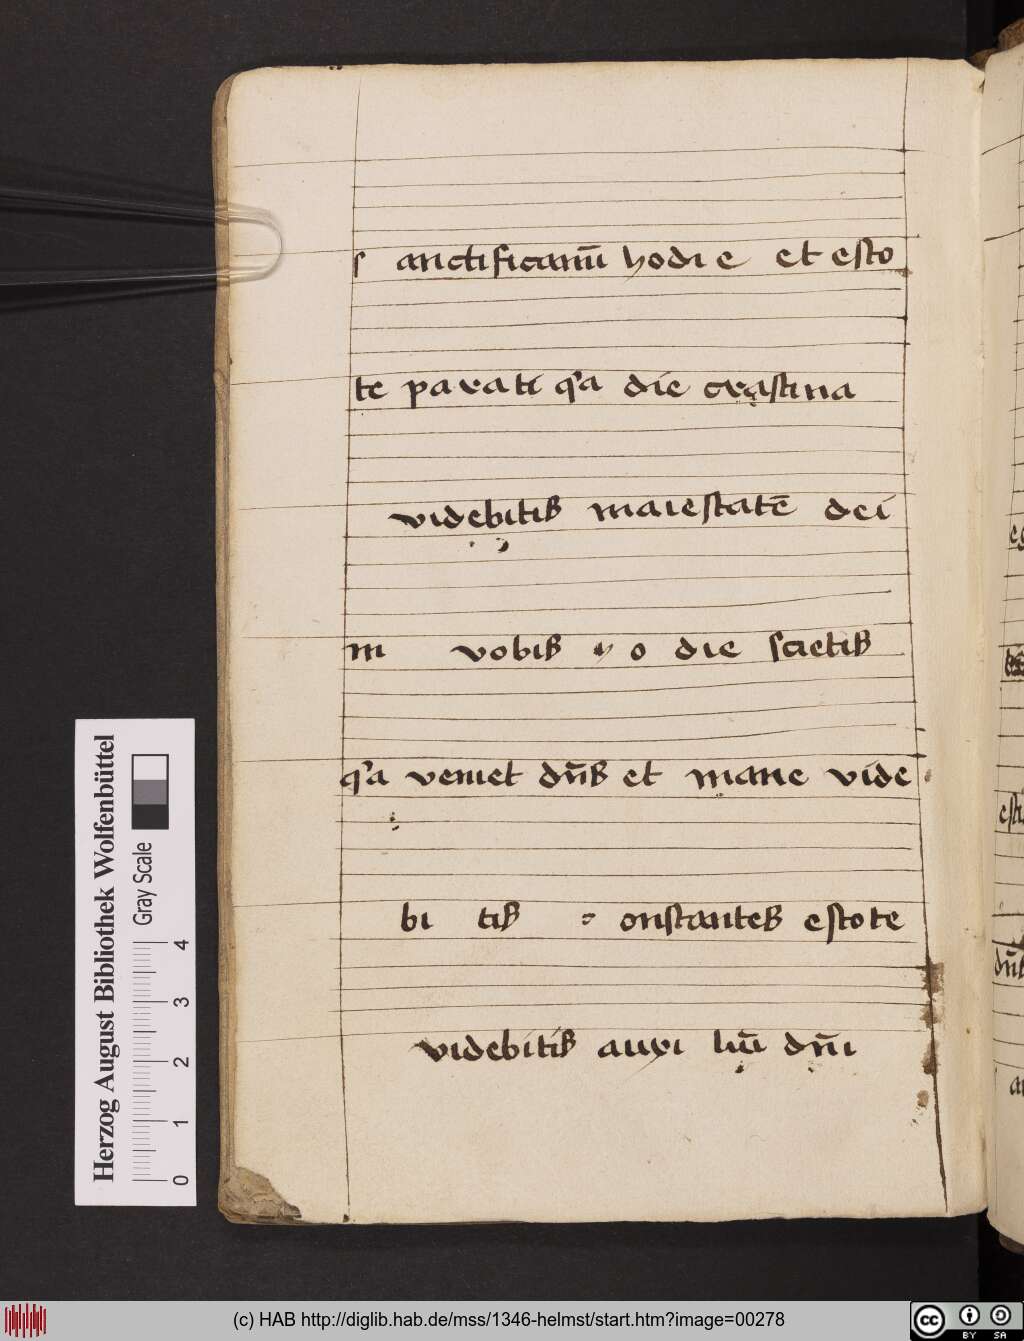 s anctificamī hodie et esto
te parati qͥa die crastina
videbitis maiestatē dei
in vobis hodie scietis
qͥa veniet dn̄s et mane vide
bi tis c onstantes estote
videbitis auxi liū dn̄i
Herzog August Bibliothek Wolfenbüttel
Gray Scale
0 1 2 3 4
(c) HAB http://diglib.hab.de/mss/1346-helmst/start.htm?image=00278
cc BY SA